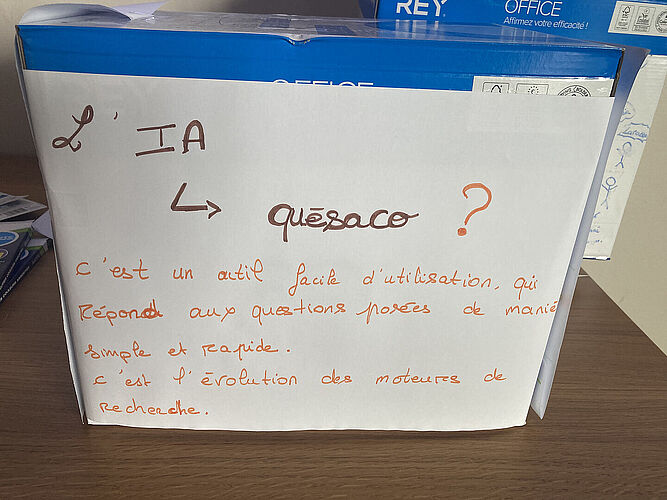 REY
OFFICE
Affirmez votre efficacité !
OFFICE
L' IA
↳ quésaco ?
c'est un outil facile d'utilisation, qui
Répond aux questions posées de maniè
simple et rapide.
c'est l'évolution des moteurs de
recherche.